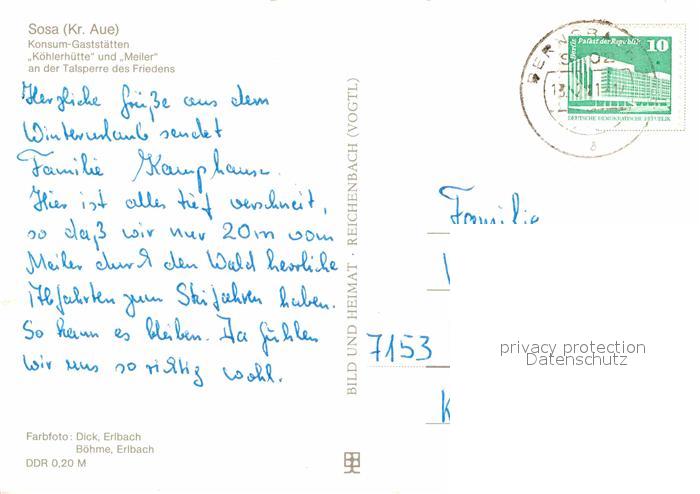 Sosa (Kr. Aue)
Konsum-Gaststätten
„Köhlerhütte" und „Meiler"
an der Talsperre des Friedens
Herzliche Grüße aus dem
Winterurlaub sendet
Familie Kamphausen.
Hier ist alles tief verschneit,
so daß wir nur 20m vom
Meiler durch den Wald herrliche
Abfahrten zum Skifahren haben.
So kann es bleiben. Da fühlen
wir uns so richtig wohl.
Farbfoto: Dick, Erlbach
Böhme, Erlbach
DDR 0,20 M
BILD UND HEIMAT · REICHENBACH (VOGTL)
Berlin, Palast der Republik
10
DEUTSCHE DEMOKRATISCHE REPUBLIK
Familie
7153
K
privacy protection
Datenschutz